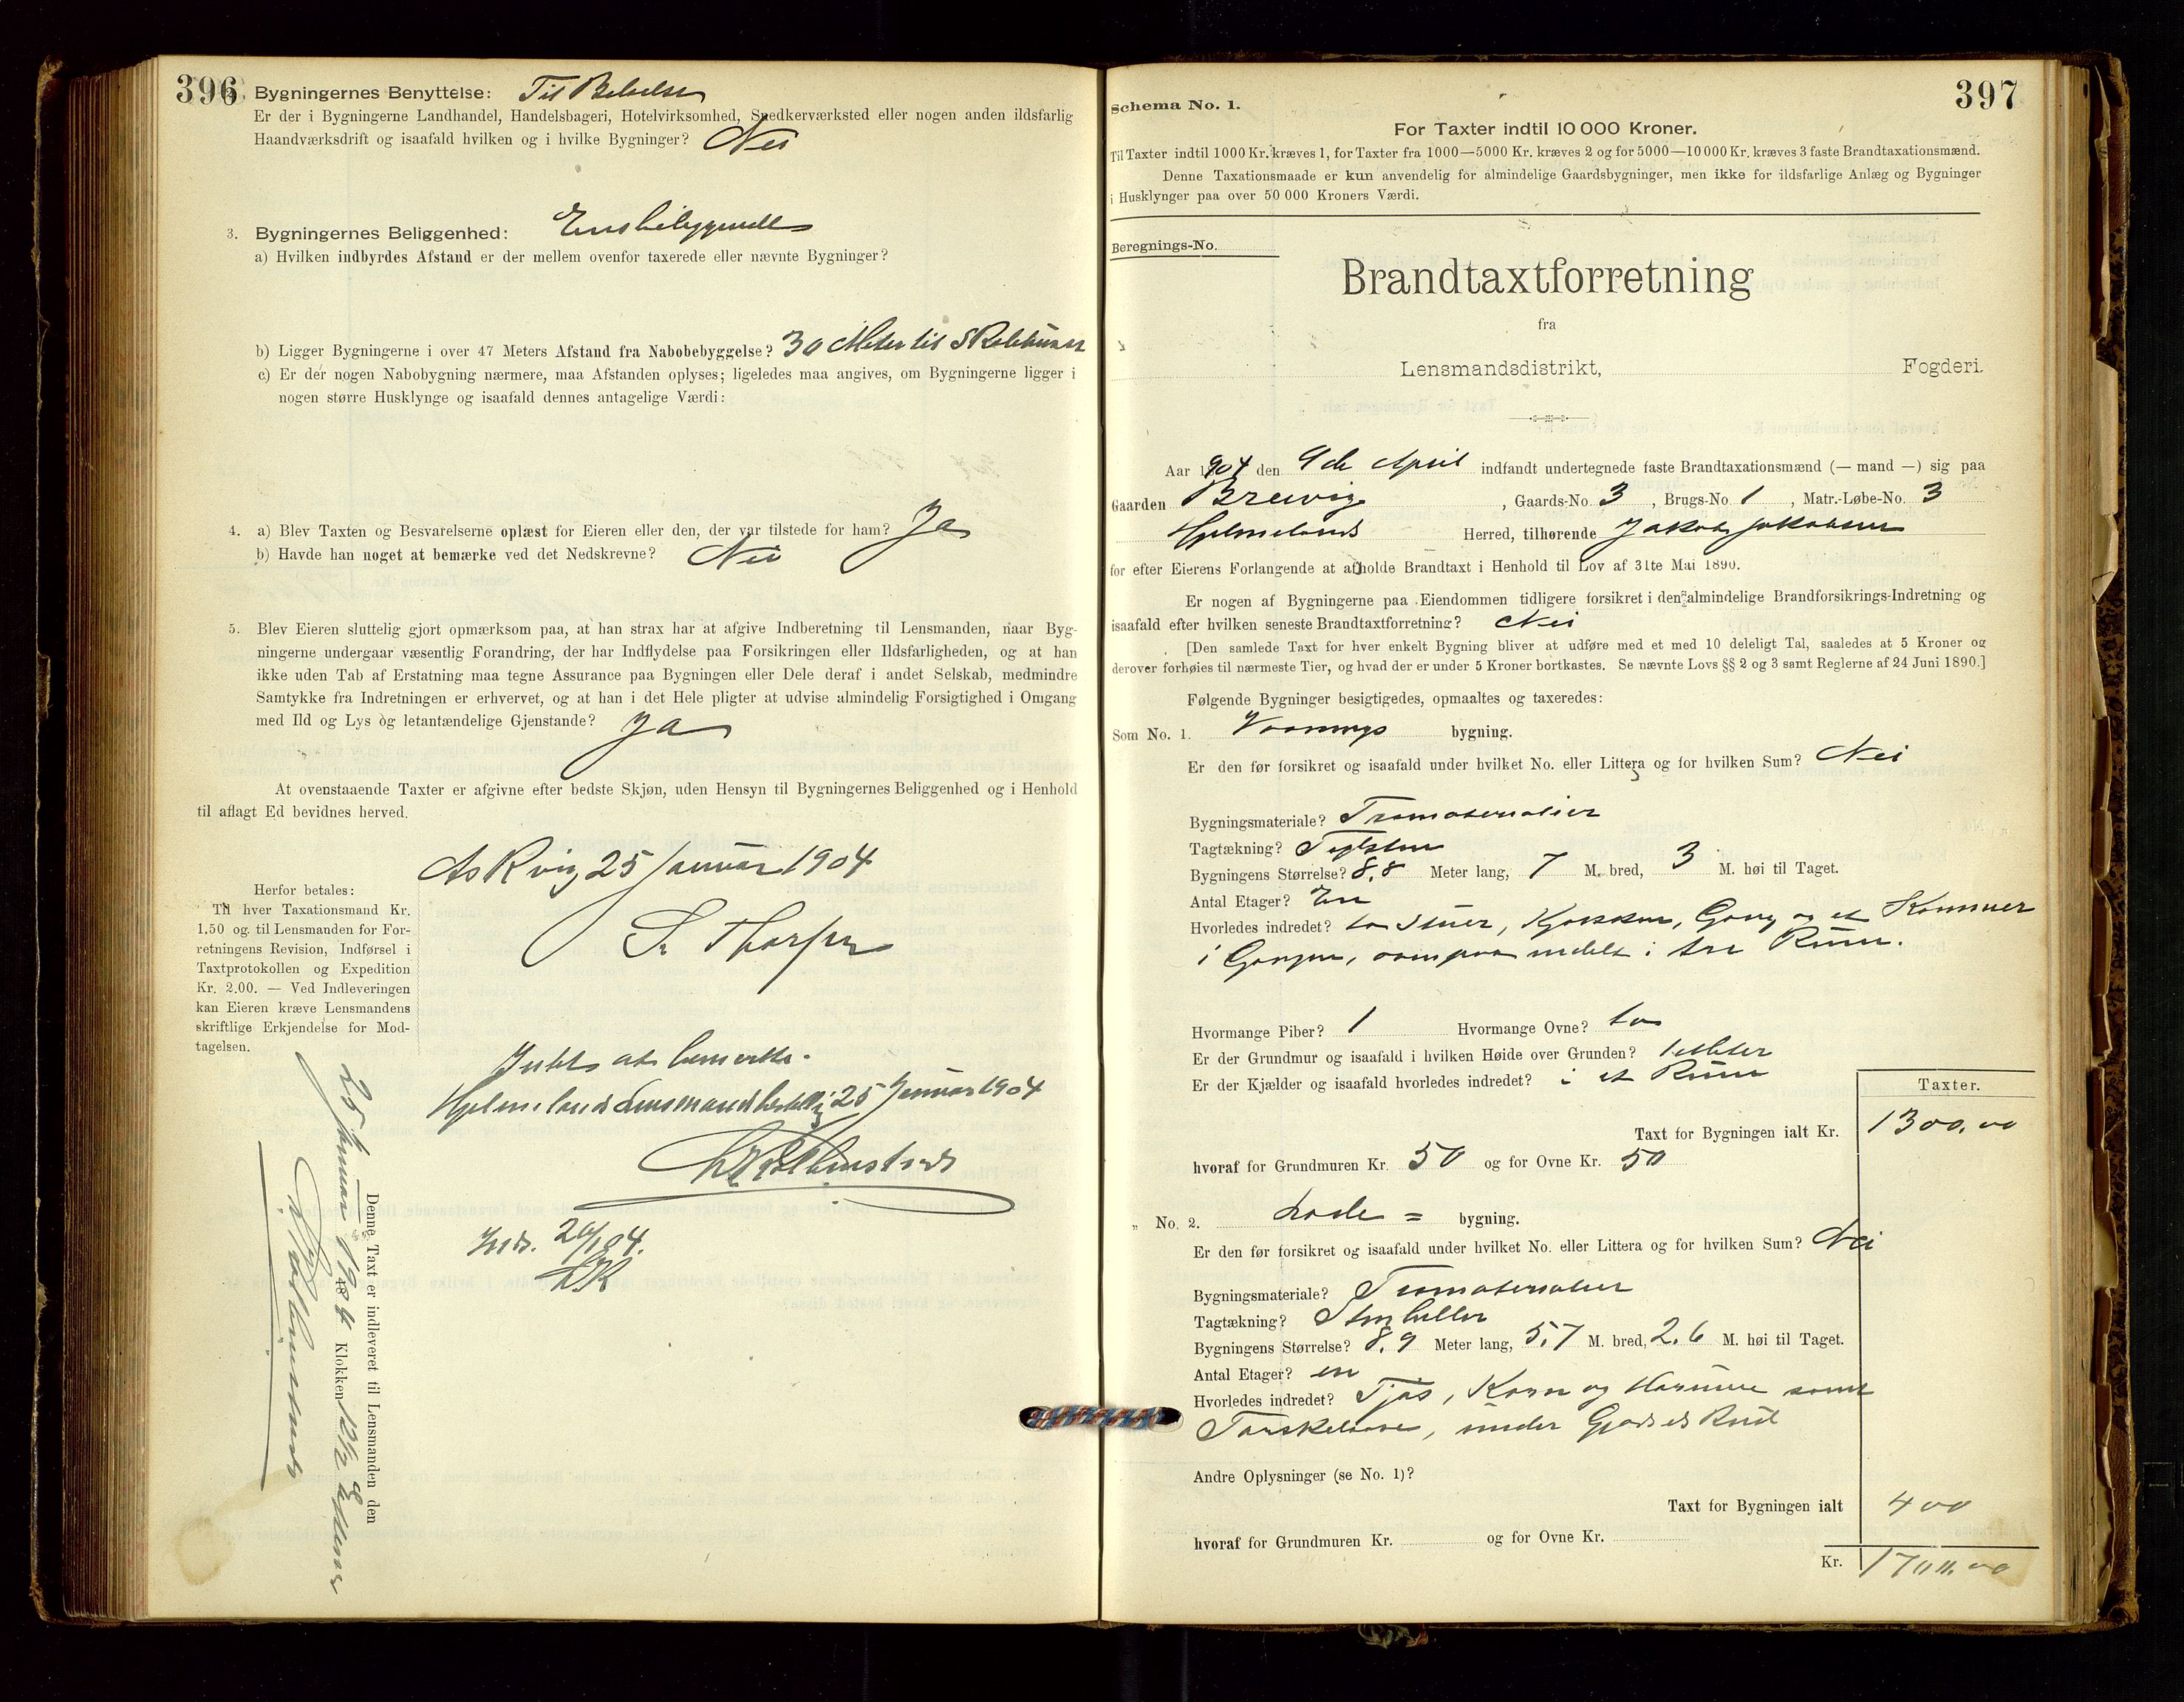 396
Bygningernes Benyttelse: Til Beboelse
Er der i Bygningerne Landhandel, Handelsbageri, Hotelvirksomhed, Snedkerværksted eller nogen anden ildsfarlig
Haandværksdrift og isaafald hvilken og i hvilke Bygninger? Nei
3. Bygningernes Beliggenhed:
a) Hvilken indbyrdes Afstand er der mellem ovenfor taxerede eller nævnte Bygninger?
b) Ligger Bygningerne i over 47 Meters Afstand fra Nabobebyggelse? 30 Meter til Skolehuset
c) Er der nogen Nabobygning nærmere, maa Afstanden oplyses; ligeledes maa angives, om Bygningerne ligger i
nogen større Husklynge og isaafald dennes antagelige Værdi:
4. a) Blev Taxten og Besvarelserne oplæst for Eieren eller den, der var tilstede for ham? Ja
b) Havde han noget at bemærke ved det Nedskrevne? Nei
5. Blev Eieren sluttelig gjort opmærksom paa, at han strax har at afgive Indberetning til Lensmanden, naar Byg-
ningerne undergaar væsentlig Forandring, der har Indflydelse paa Forsikringen eller Ildsfarligheden, og at han
ikke uden Tab af Erstatning maa tegne Assurance paa Bygningen eller Dele deraf i andet Selskab, medmindre
Samtykke fra Indretningen er erhvervet, og at han i det Hele pligter at udvise almindelig Forsigtighed i Omgang
med Ild og Lys og letantændelige Gjenstande? Ja
At ovenstaaende Taxter er afgivne efter bedste Skjøn, uden Hensyn til Bygningernes Beliggenhed og i Henhold
til aflagt Ed bevidnes herved.
Askvig 25 Januar 1904
Herfor betales:
Til hver Taxationsmand Kr.
1.50 og til Lensmanden for For-
retningens Revision, Indførsel i
Taxtprotokollen og Expedition
Kr. 2.00. — Ved Indleveringen
kan Eieren kræve Lensmandens
skriftlige Erkjendelse for Mod-
tagelsen.
Intet at bemerke.
Hjelmeland Lensmandsbestilling 25 Januar 1904
Inds. 26/1 04.
LK
Denne Taxt er indleveret til Lensmanden den
25 Januar 1904 Klokken 12 1/2 Efterm
397
Schema No. 1.
For Taxter indtil 10 000 Kroner.
Til Taxter indtil 1000 Kr. kræves 1, for Taxter fra 1000—5000 Kr. kræves 2 og for 5000—10 000 Kr. kræves 3 faste Brandtaxationsmænd.
Denne Taxationsmaade er kun anvendelig for almindelige Gaardsbygninger, men ikke for ildsfarlige Anlæg og Bygninger
i Husklynger paa over 50 000 Kroners Værdi.
Beregnings-No.
Brandtaxtforretning
fra
Lensmandsdistrikt, Fogderi.
Aar 1904 den 9de April indfandt undertegnede faste Brandtaxationsmænd (— mand —) sig paa
Gaarden Brevig, Gaards-No. 3, Brugs-No. 1, Matr.-Løbe-No. 3
Hjelmelands Herred, tilhørende Jakob Jakobsen
for efter Eierens Forlangende at afholde Brandtaxt i Henhold til Lov af 31te Mai 1890.
Er nogen af Bygningerne paa Eiendommen tidligere forsikret i den almindelige Brandforsikrings-Indretning og
isaafald efter hvilken seneste Brandtaxtforretning? Nei
[Den samlede Taxt for hver enkelt Bygning bliver at udføre med et med 10 deleligt Tal, saaledes at 5 Kroner og
derover forhøies til nærmeste Tier, og hvad der er under 5 Kroner bortkastes. Se nævnte Lovs §§ 2 og 3 samt Reglerne af 24 Juni 1890.]
Følgende Bygninger besigtigedes, opmaaltes og taxeredes:
Som No. 1. Vaanings bygning.
Er den før forsikret og isaafald under hvilket No. eller Littera og for hvilken Sum? Nei
Bygningsmateriale? Træmaterialier
Tagtækning? Teglsten
Bygningens Størrelse? 8,8 Meter lang, 7 M. bred, 3 M. høi til Taget.
Antal Etager? En
Hvorledes indredet? to Stuer, Kjøkken, Gang og et Kammer
i Gangen, ovenpaa indelt i tre Rum.
Hvormange Piber? 1 Hvormange Ovne? to
Er der Grundmur og isaafald i hvilken Høide over Grunden? 1 Meter
Er der Kjælder og isaafald hvorledes indredet? i et Rum
Taxter.
Taxt for Bygningen ialt Kr. 1300,00
hvoraf for Grundmuren Kr. 50 og for Ovne Kr. 50
„ No. 2. Lade = bygning.
Er den før forsikret og isaafald under hvilket No. eller Littera og for hvilken Sum? Nei
Bygningsmateriale? Træmaterialier
Tagtækning? Stenheller
Bygningens Størrelse? 8,9 Meter lang, 5,7 M. bred, 2,6 M. høi til Taget.
Antal Etager? en
Hvorledes indredet? Korn og samt
Tærskelaave, under
Andre Oplysninger (se No. 1)?
Taxt for Bygningen ialt 400
hvoraf for Grundmuren Kr. og for Ovne Kr.
Kr. 1700,00